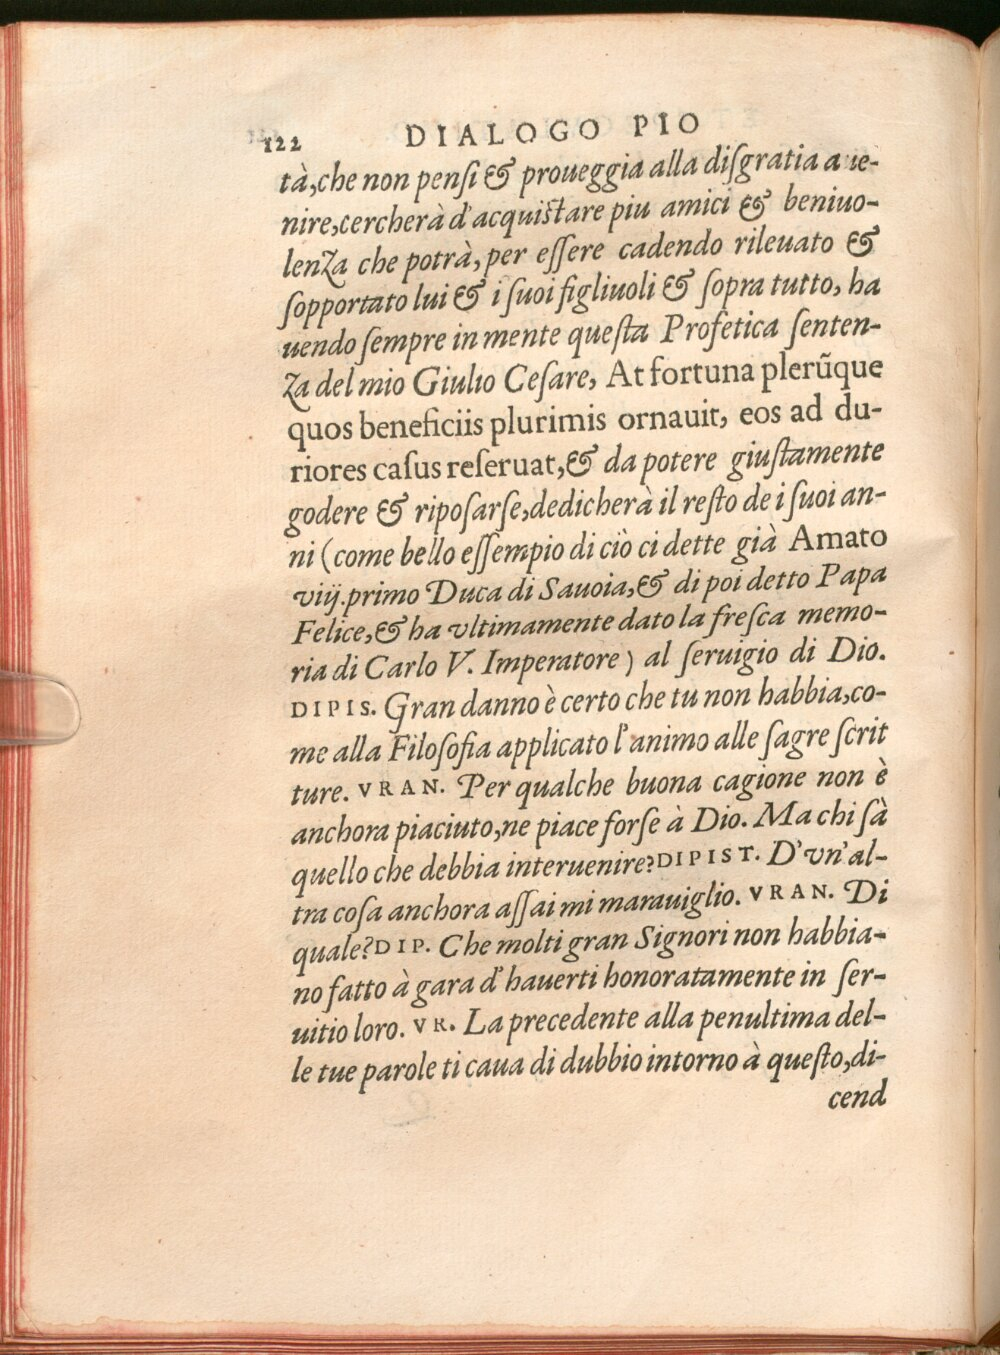 122 DIALOGO PIO
tà,che non pensi & proueggia alla disgratia a ue-
nire,cercherà d'acquistare piu amici & beniuo-
lenza che potrà, per essere cadendo rileuato &
sopportato lui & i suoi figliuoli & sopra tutto, ha
uendo sempre in mente questa Profetica senten-
za del mio Giulio Cesare, At fortuna plerũque
quos beneficiis plurimis ornauit, eos ad du-
riores casus reseruat,& da potere giustamente
godere & riposarse,dedicherà il resto de i suoi an-
ni (come bello essempio di ciò ci dette già Amato
viij.primo Duca di Sauoia,& di poi detto Papa
Felice,& ha vltimamente dato la fresca memo-
ria di Carlo V. Imperatore) al seruigio di Dio.
DIPIS. Gran danno è certo che tu non habbia,co-
me alla Filosofia applicato l'animo alle sagre scrit
ture. VRAN. Per qualche buona cagione non è
anchora piaciuto,ne piace forse à Dio. Ma chi sà
quello che debbia interuenire? DIPIST. D'vn'al-
tra cosa anchora assai mi marauiglio. VRAN. Di
quale? DIP. Che molti gran Signori non habbia-
no fatto à gara d'hauerti honoratamente in ser-
uitio loro. VR. La precedente alla penultima del-
le tue parole ti caua di dubbio intorno à questo,di-
cend